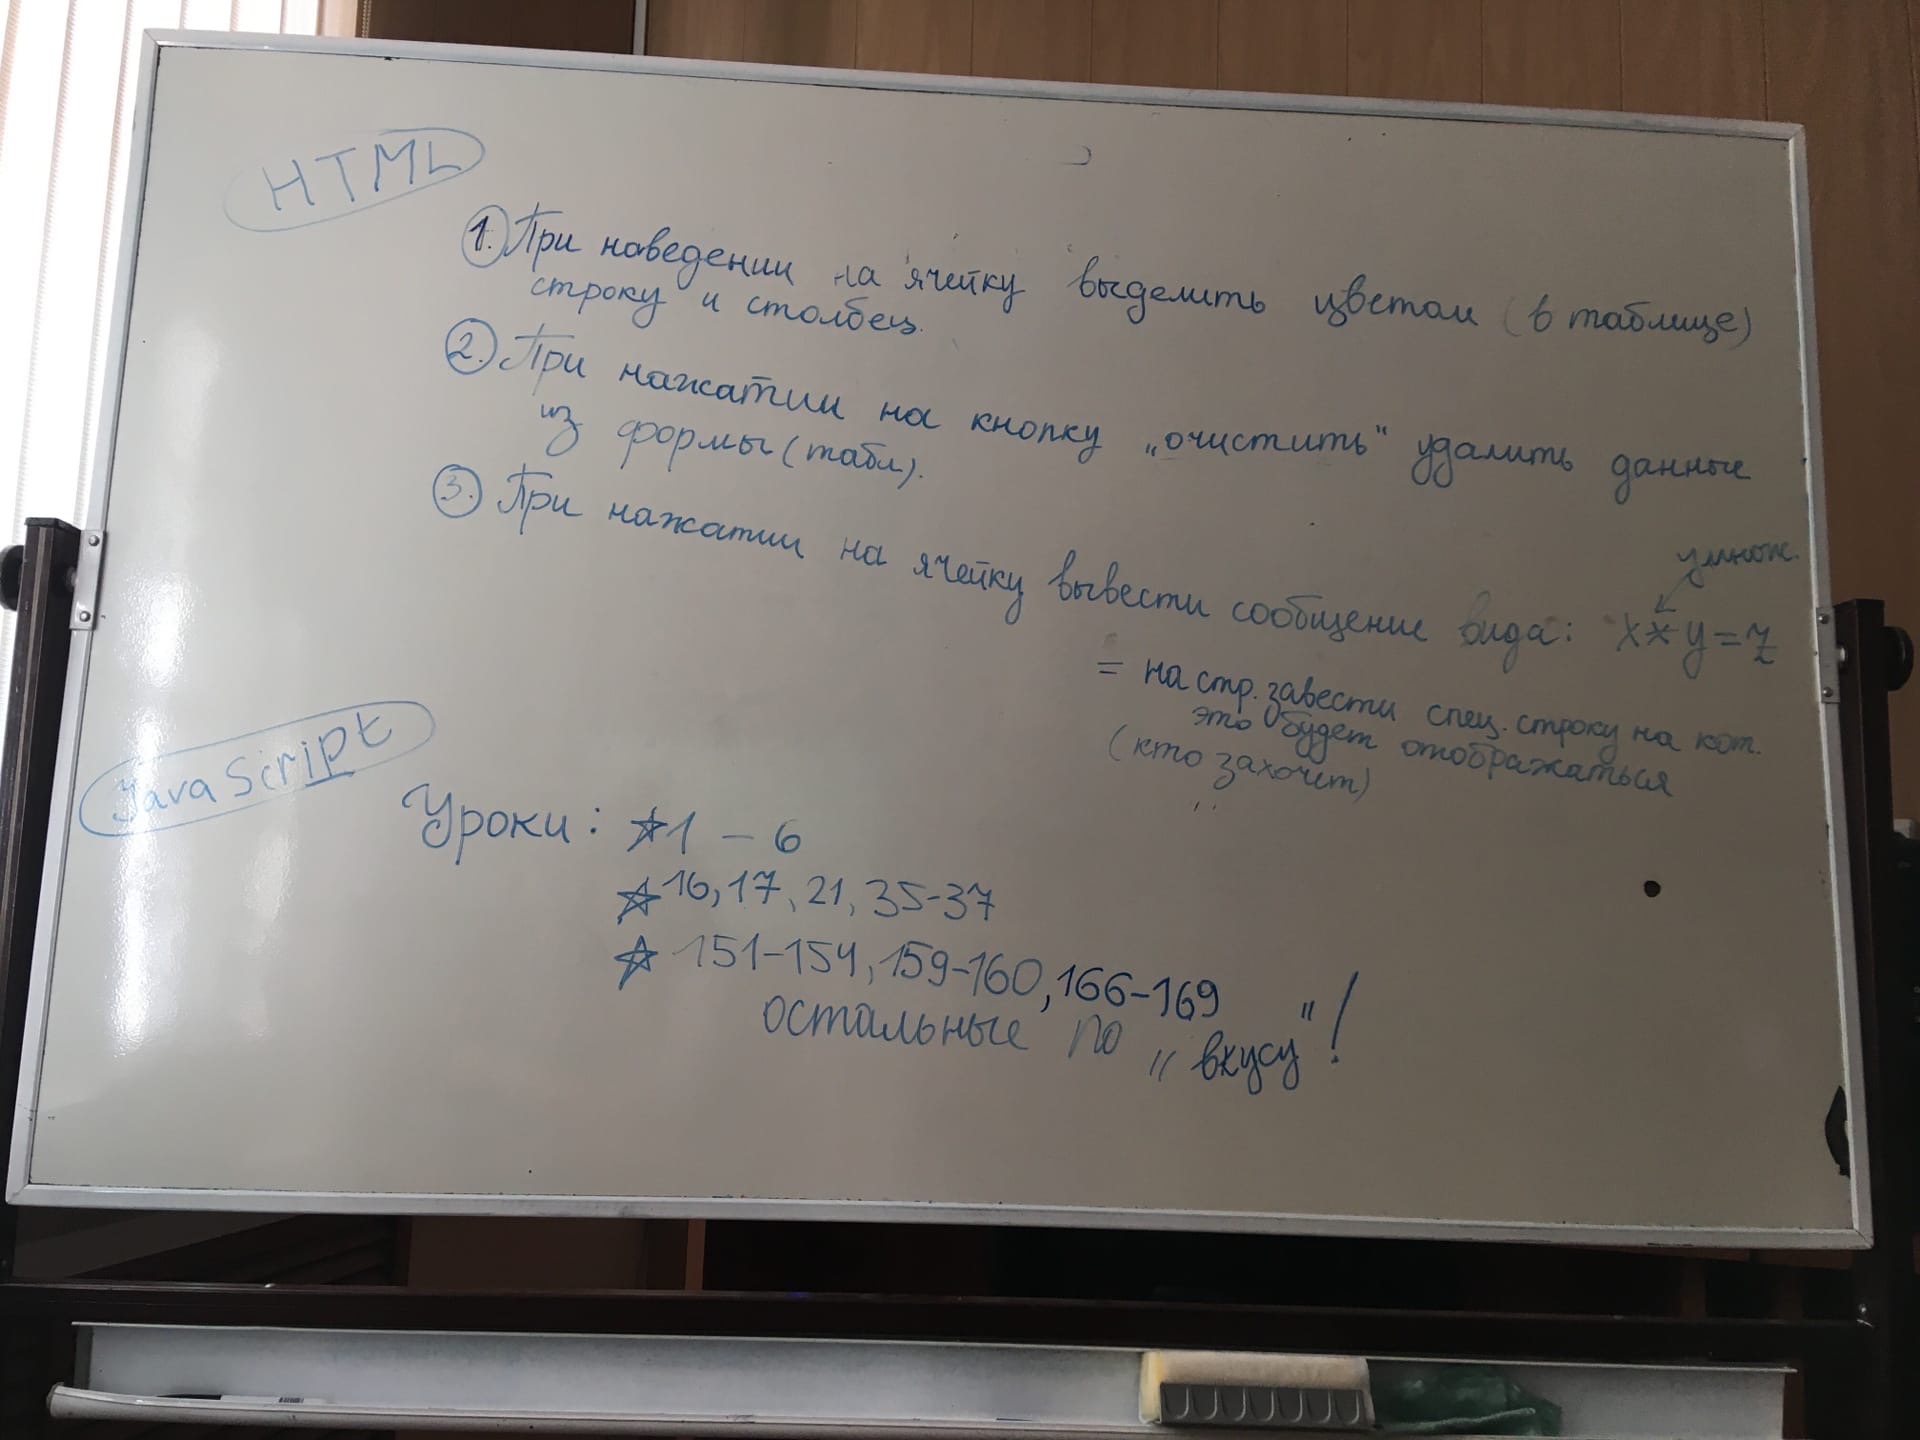 HTML
1. При наведении на ячейку выделить цветом (в таблице)
строку и столбец.
2. При нажатии на кнопку „очистить“ удалить данные
из формы (табл).
3. При нажатии на ячейку вывести сообщение вида: x * y = z
умнож.
= на стр. завести спец. строку на кот.
это будет отображаться
(кто захочет)
JavaScript
Уроки: ☆ 1 – 6
☆ 16, 17, 21, 35-37
☆ 151-154, 159-160, 166-169
остальные по „вкусу“!